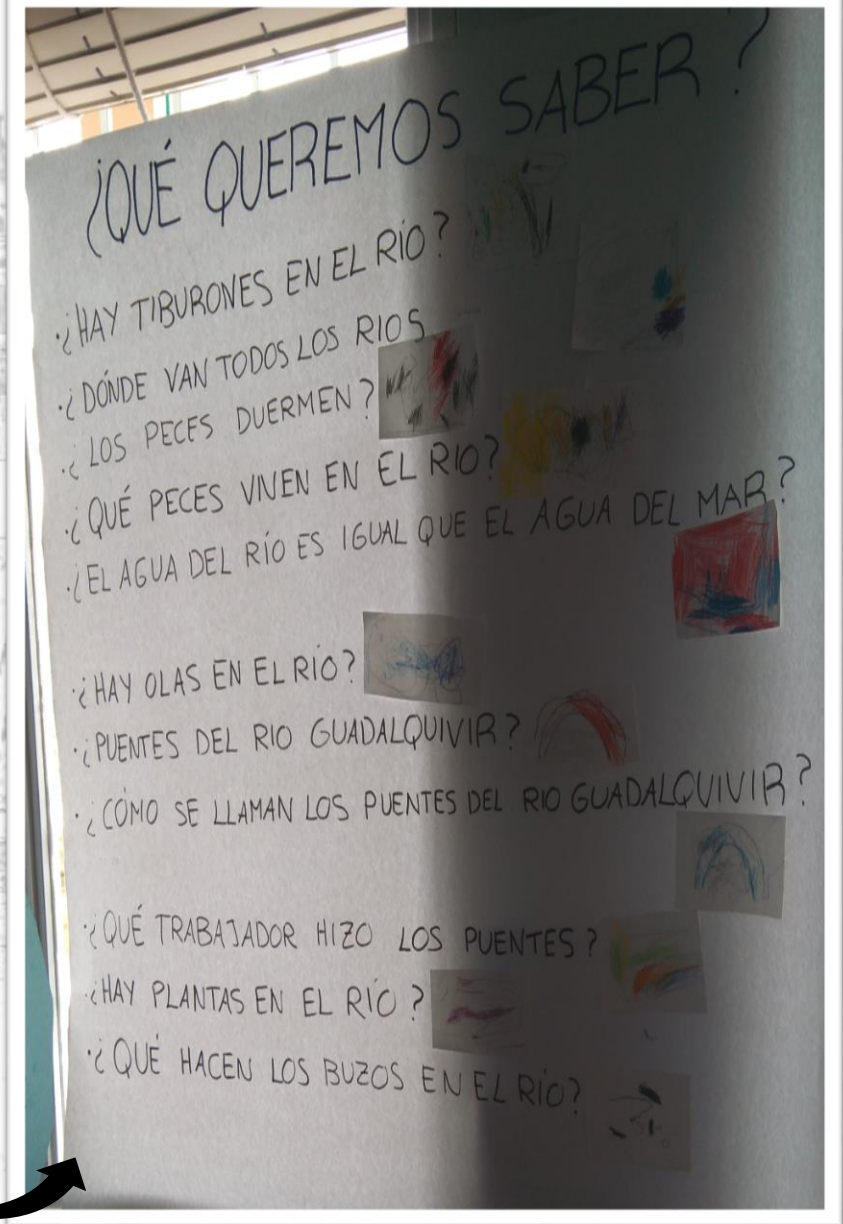 ¿QUÉ QUEREMOS SABER?
·¿HAY TIBURONES EN EL RÍO?
·¿DÓNDE VAN TODOS LOS RIOS
·¿LOS PECES DUERMEN?
·¿QUÉ PECES VIVEN EN EL RIO?
·¿EL AGUA DEL RÍO ES IGUAL QUE EL AGUA DEL MAR?
·¿HAY OLAS EN EL RIO?
·¿PUENTES DEL RIO GUADALQUIVIR?
·¿CÓMO SE LLAMAN LOS PUENTES DEL RIO GUADALQUIVIR?
·¿QUÉ TRABAJADOR HIZO LOS PUENTES?
·¿HAY PLANTAS EN EL RÍO?
·¿QUÉ HACEN LOS BUZOS EN EL RÍO?